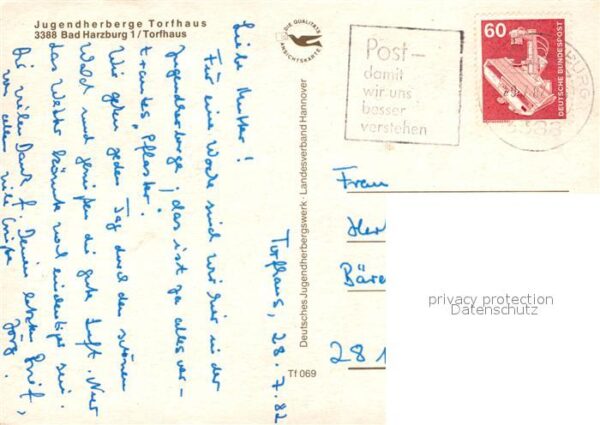 Jugendherberge Torfhaus
3388 Bad Harzburg 1/Torfhaus
DIE QUALITÄTS
ANSICHTSKARTE
Torfhaus, 28.7.82
Liebe Mutter!
Für eine Woche sind wir hier in der
Jugendherberge, das ist ja alles ver-
trautes "Pflaster".
Wir gehen jeden Tag durch den schönen
Wald und genießen die gute Luft. Nur
das Wetter könnte noch eindeutiger sein.
Dir vielen Dank f. Deinen letzten Brief,
von allen viele Grüße
Jörg.
Deutsches Jugendherbergswerk · Landesverband Hannover
Tf 069
Post–
damit
wir uns
besser
verstehen
60
DEUTSCHE BUNDESPOST
3388
Frau
Bäre
28 1
privacy protection
Datenschutz